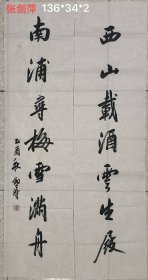 张剑萍 136*34*2
西山載酒雲生屐
南浦尋梅雪滿舟
乙酉秋 劍萍